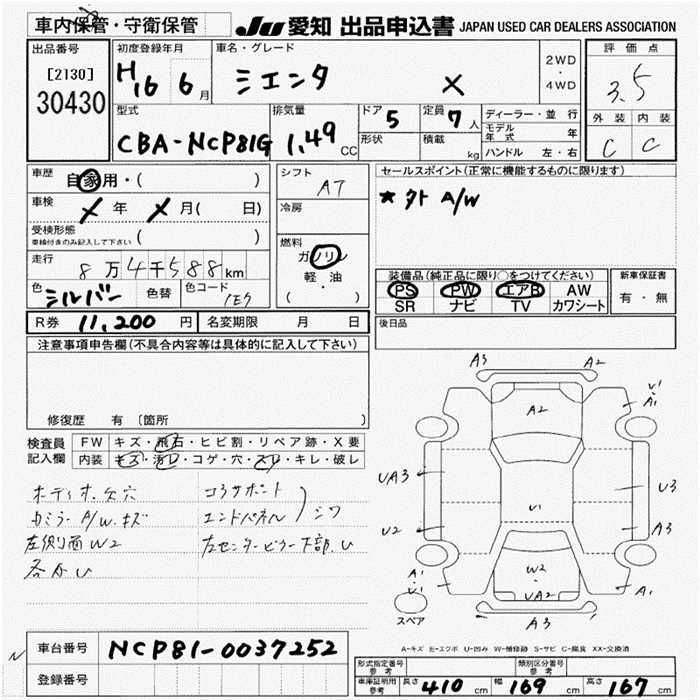 車内保管・守衛保管
JU 愛知 出品申込書 JAPAN USED CAR DEALERS ASSOCIATION
出品番号
[2130]
30430
初度登録年月
H16 6月
車名・グレード
シエンタ X
2WD
・
4WD
評価点
3.5
外装 内装
C C
型式
CBA-NCP81G
排気量
1.49 CC
ドア 5
形状
定員 7人
積載 kg
ディーラー・並行
モデル年式 年
ハンドル 左・右
車歴 自家用・( )
車検 X年 X月( 日)
受検形態
車検付きのみ記入して下さい ( )
走行 8万4千588km
色 シルバー 色替
色コード 1E7
シフト AT
冷房
燃料
ガソリン
軽・油
( )
セールスポイント(正常に機能するものに限ります)
★外 A/W
装備品(純正品に限り○をつけてください)
PS PW エアB AW
SR ナビ TV カワシート
新車保証書
有・無
R券 11,200円
名変期限 月 日
後日品
注意事項申告欄(不具合内容等は具体的に記入して下さい)
修復歴 有 (箇所 )
検査員記入欄
FW キズ・飛石・ヒビ割・リペア跡・X要
内装 キズ・汚レ・コゲ・穴・スレ・キレ・破レ
コラサポート
エンドパネル ) シワ
ミラー A/W.キズ
左側面W2
左センターピラー下部.U
各小U
A3 A2
A2
U1
A1
UA3
U3
U1
U2
A3
W2
UA2
A1
U1
A1
A3
スペア
A-キズ E-エクボ U-凹み W-補修跡 S-サビ C-腐食 XX-交換済
N
車台番号 NCP81-0037252
登録番号
形式指定番号
参考
類別区分番号
参考
車庫証明用
参考
長さ 410 cm 幅 169 cm 高さ 167 cm